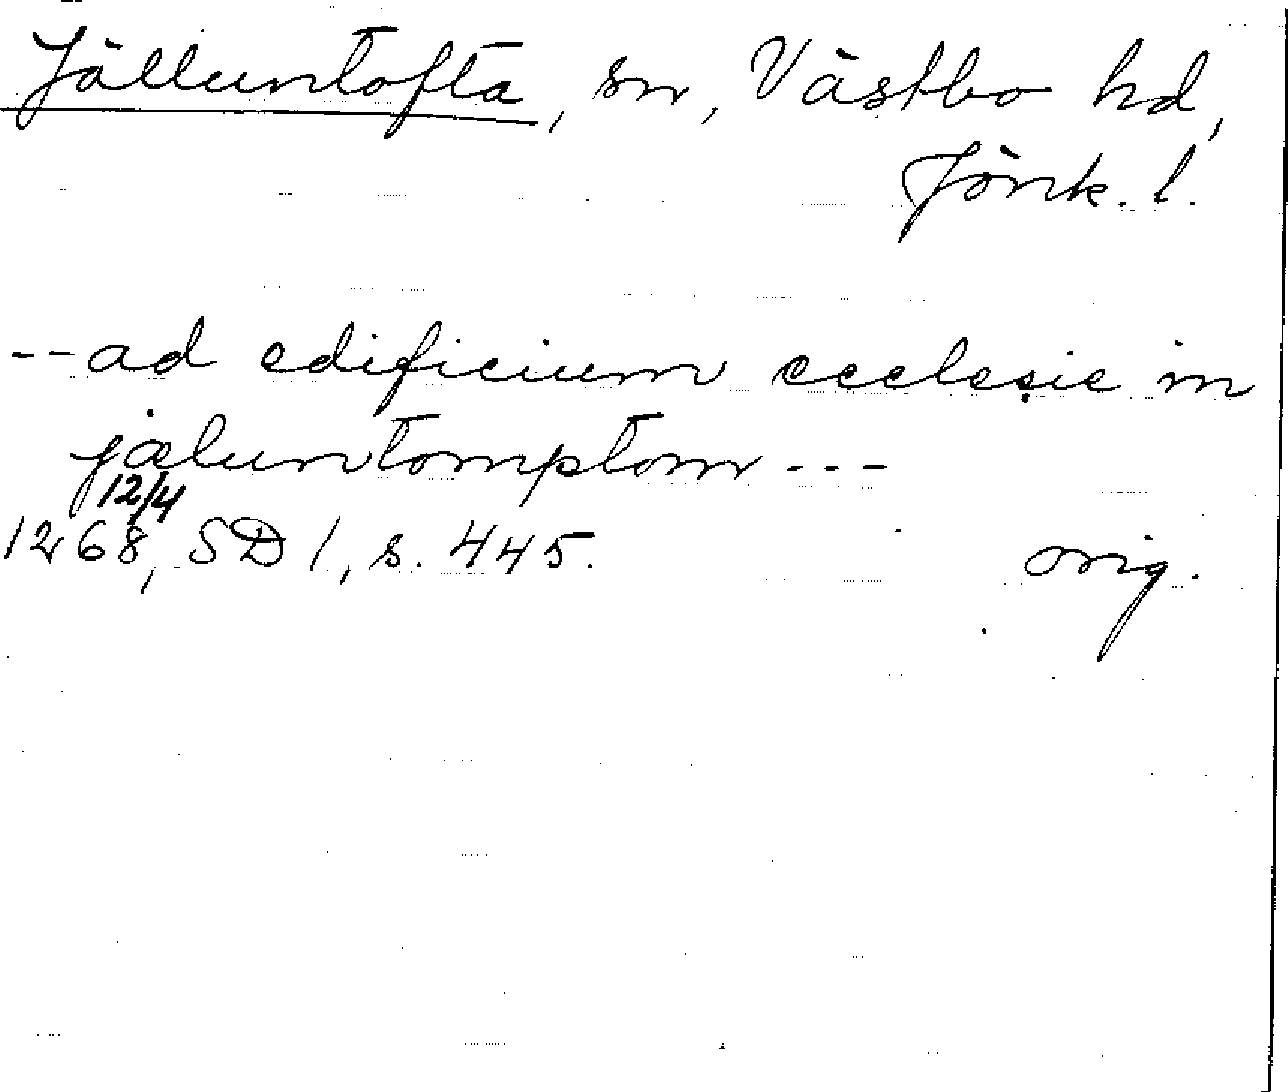 Jälluntofta, sn, Västbo hd,
Jönk. l.
-- ad edificium ecclesie in
jæluntomptom ---
12/4
1268, SD 1, s. 445. orig.